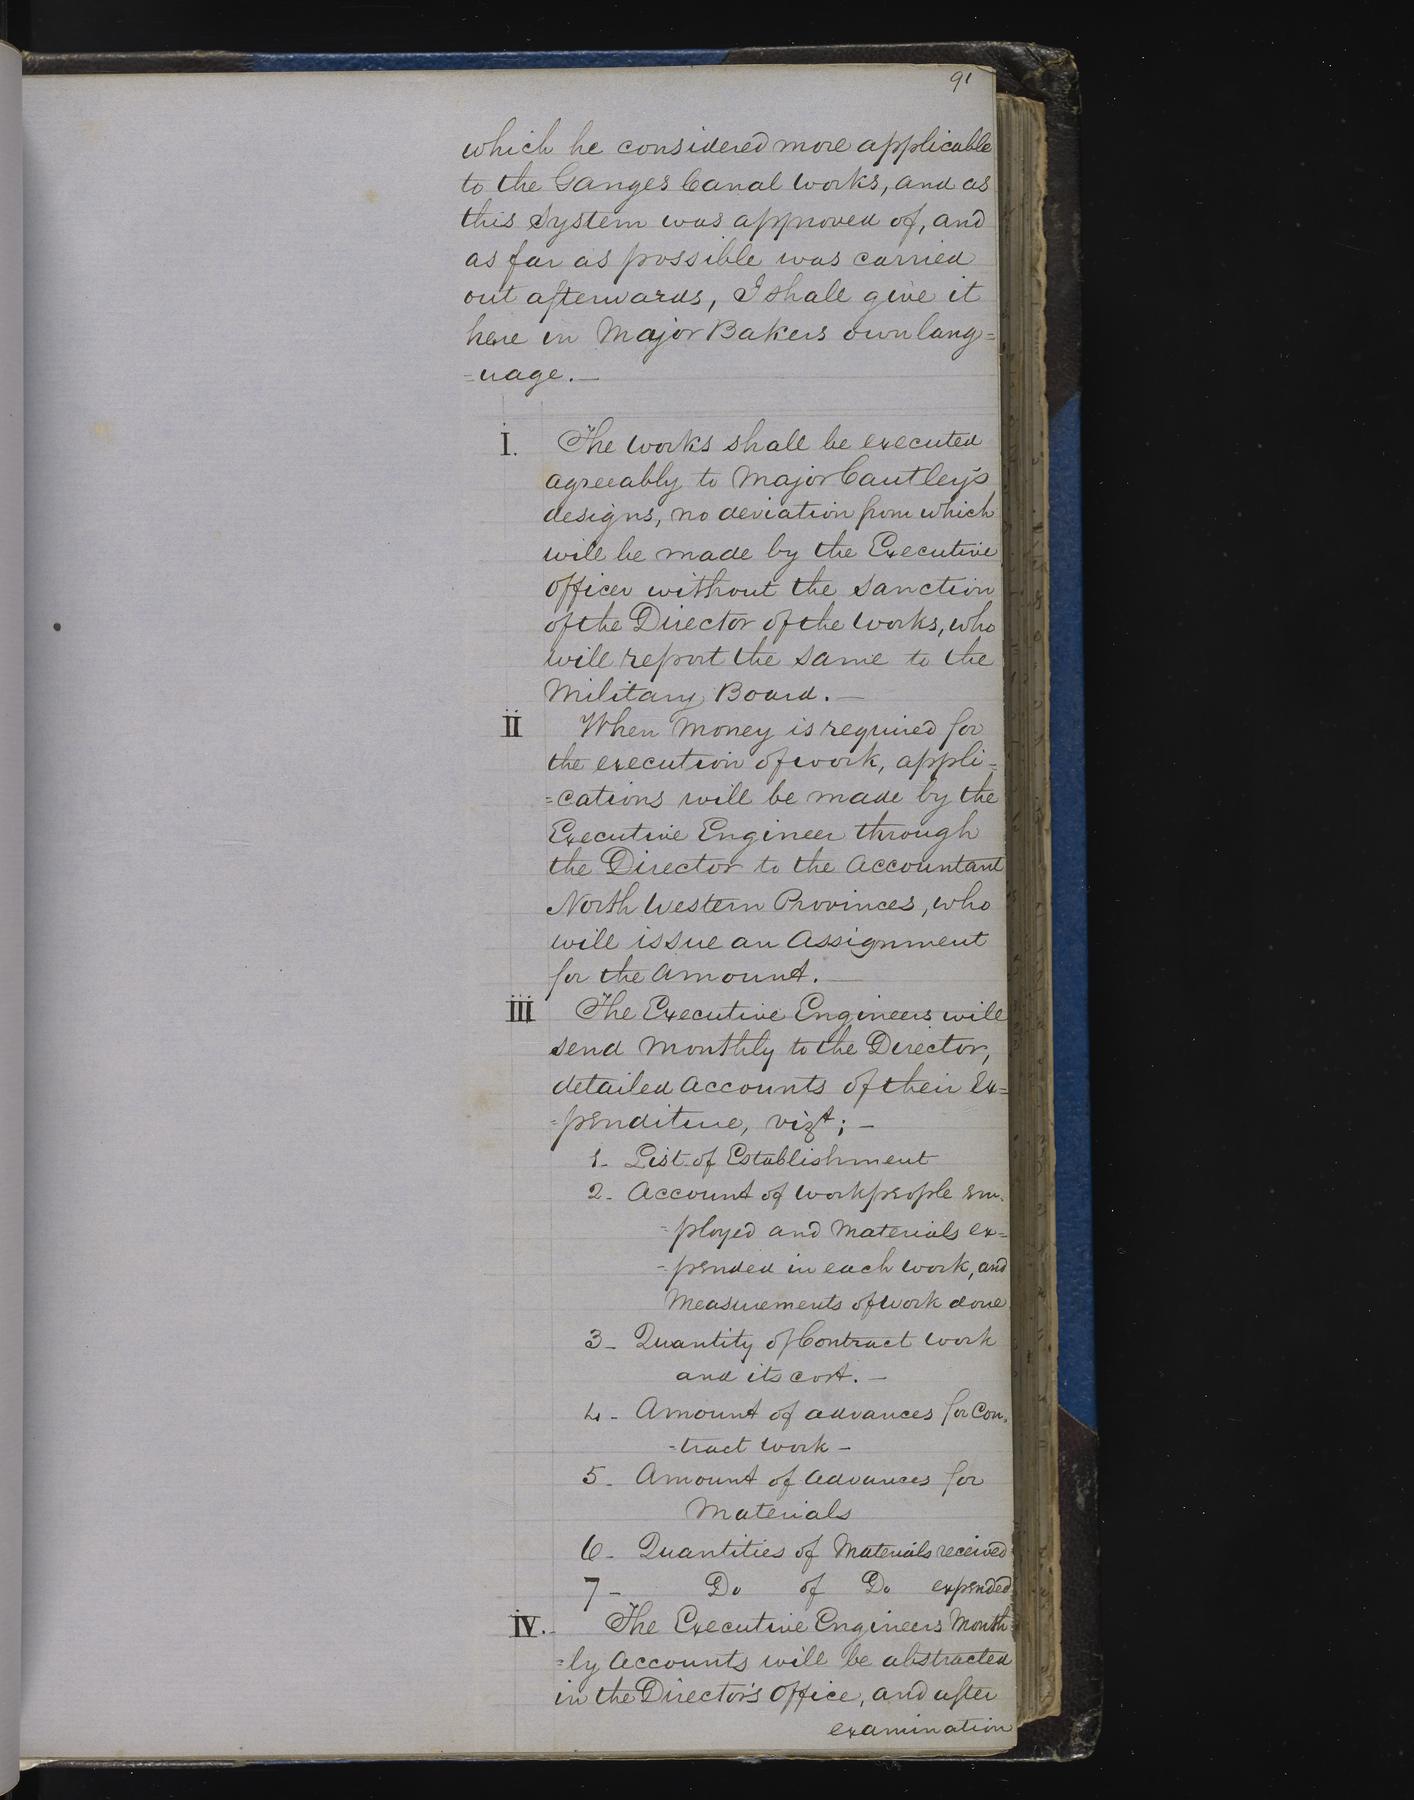 91
which he considered more applicable
to the Ganges Canal works, and as
this system was approved of, and
as far as possible was carried
out afterwards, I shall give it
here in Major Bakers own lang=
=uage.—
I. The works shall be executed
agreeably to Major Cautley's
designs, no deviation from which
will be made by the Executive
officer without the sanction
of the Director of the works, who
will report the same to the
Military Board.—
II When money is required for
the execution of work, appli=
=cations will be made by the
Executive Engineer through
the Director to the Accountant
North Western Provinces, who
will issue an Assignment
for the amount.—
III The Executive Engineers will
send monthly to the Director,
detailed accounts of their Ex=
=penditure, vizt; —
1- List of Establishment
2- Account of workpeople em=
=ployed and Materials ex=
=pended in each work, and
Measurements of work done
3- Quantity of Contract work
and its cost.—
4- Amount of advances for Con=
=tract work —
5- Amount of advances for
Materials
6- Quantities of Materials received
7- Do of Do expended
IV.- The Executive Engineers Month=
=ly Accounts will be abstracted
in the Director's Office, and after
examination